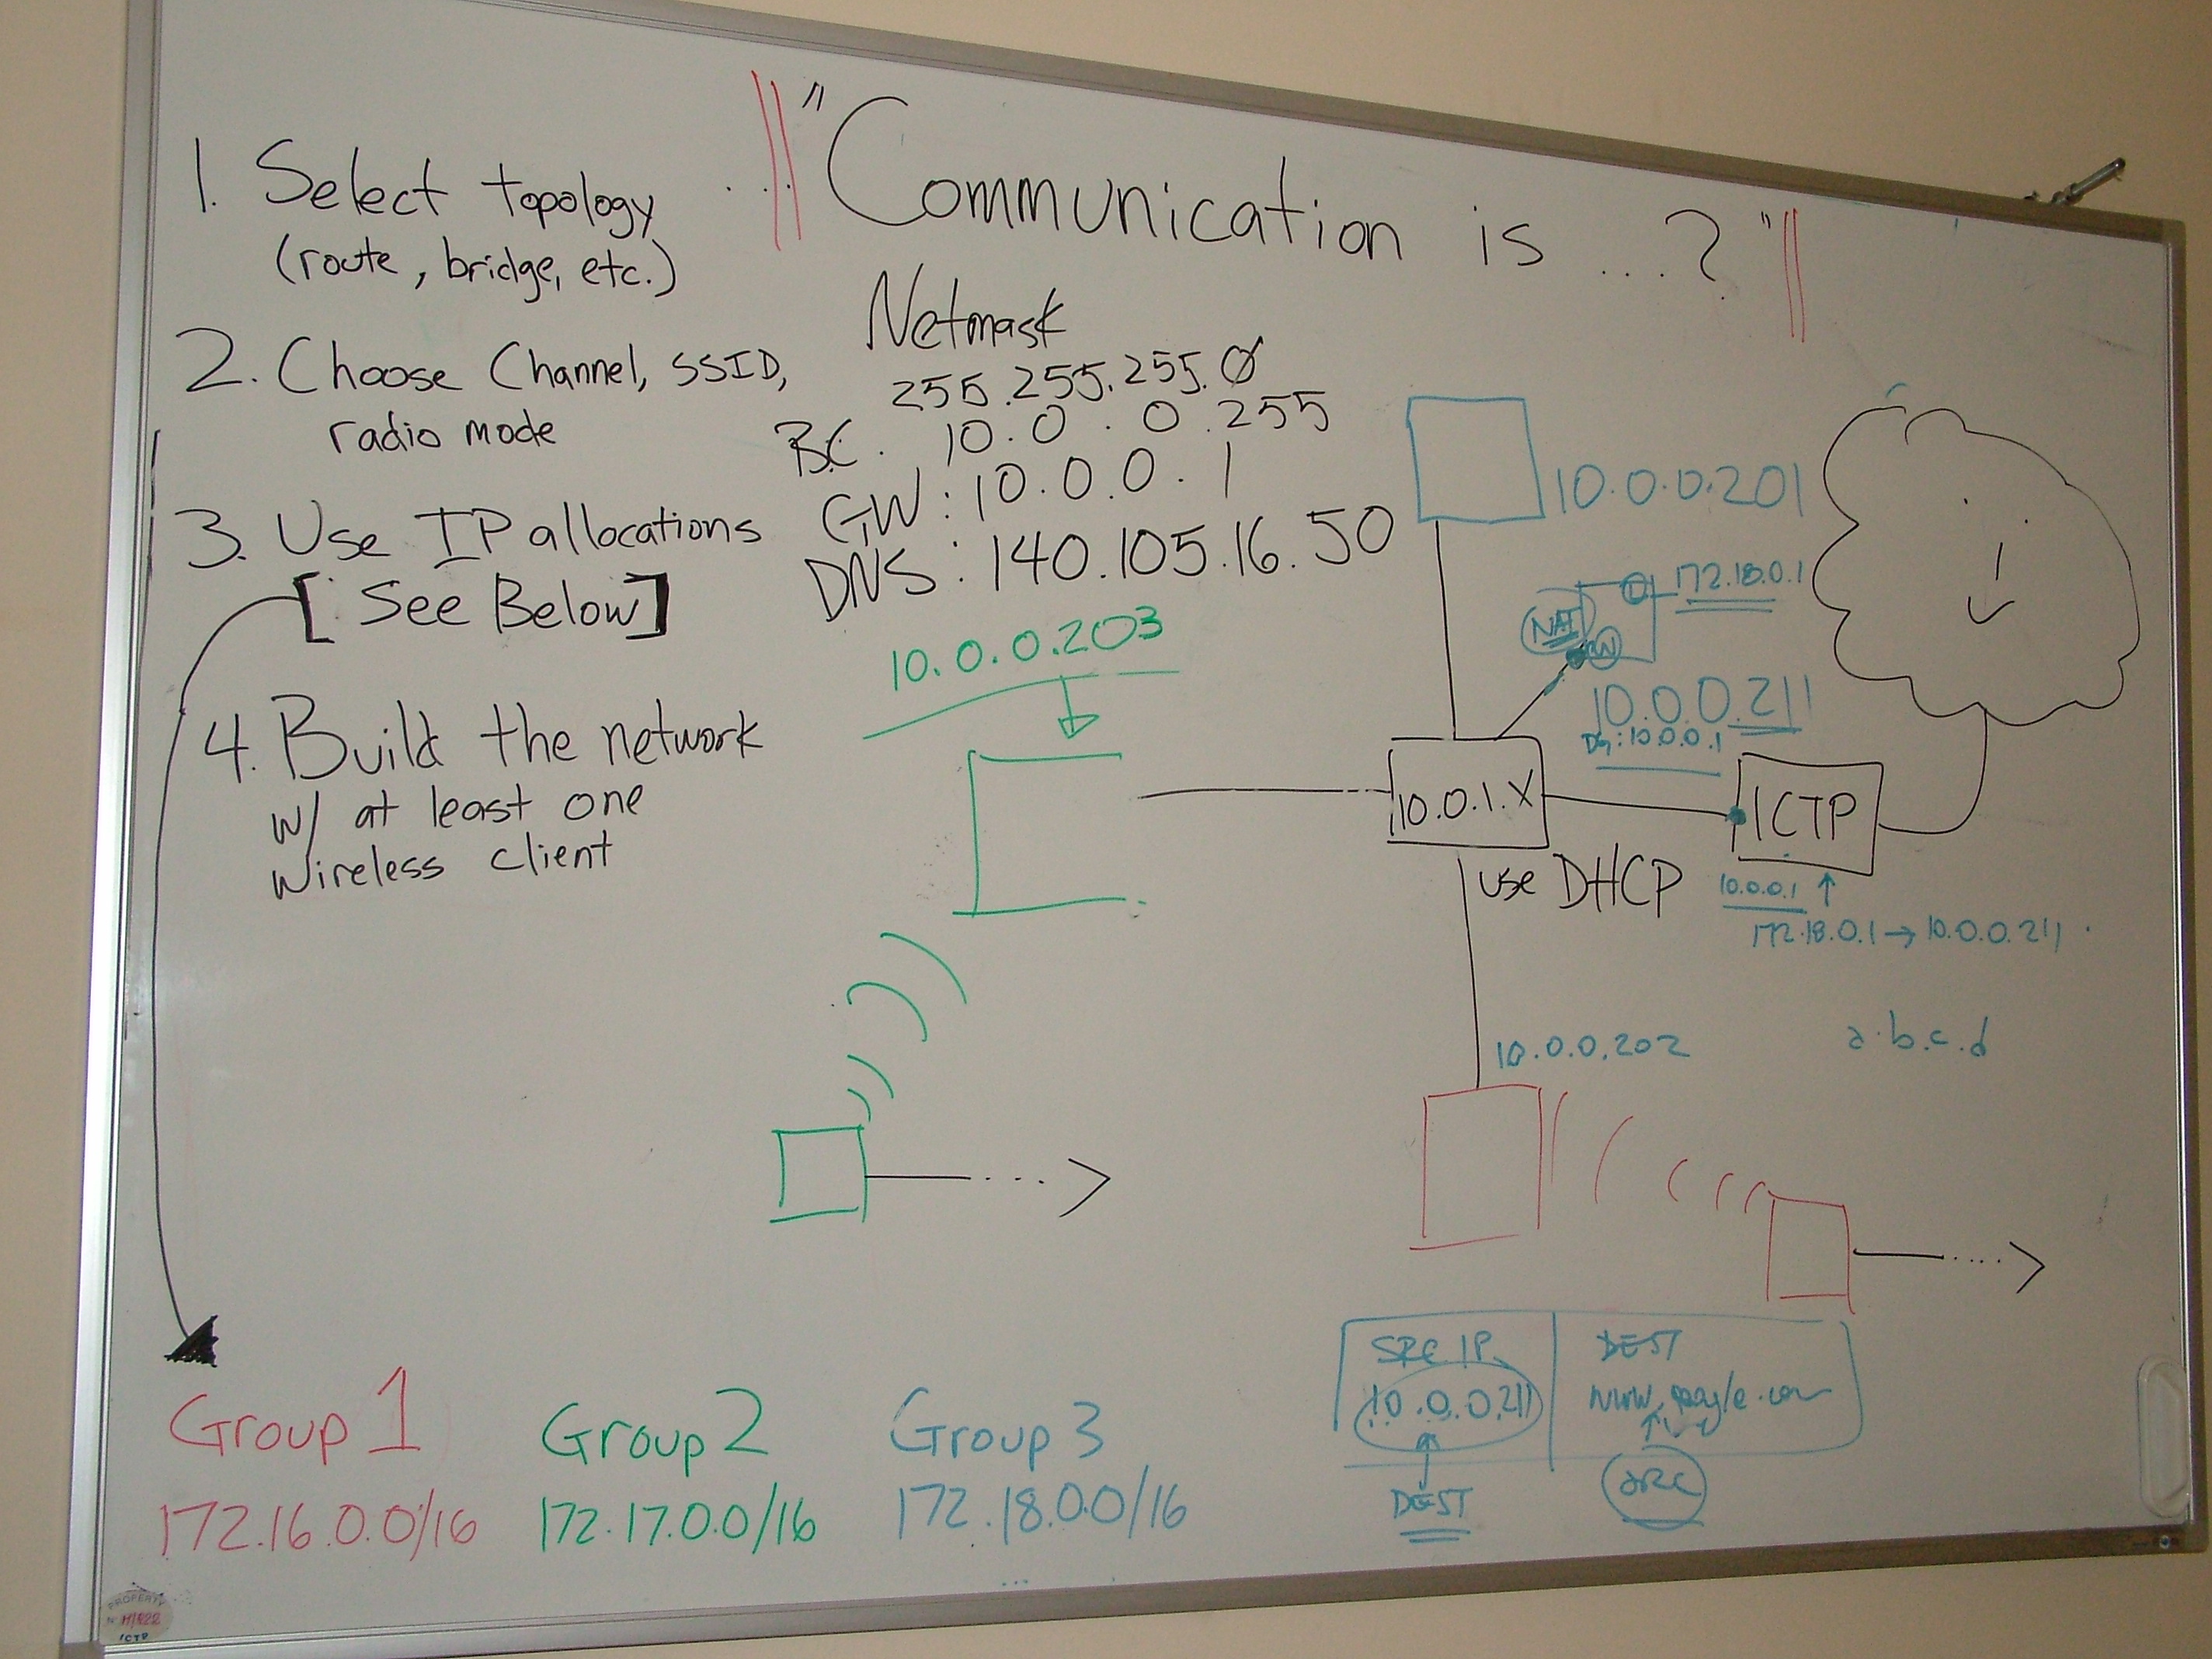 "Communication is ...?"
1. Select topology
(route, bridge, etc.)
2. Choose Channel, SSID,
radio mode
3. Use IP allocations
[See Below]
4. Build the network
w/ at least one
wireless client
Netmask
255.255.255.0
BC. 10.0.0.255
GW: 10.0.0.1
DNS: 140.105.16.50
10.0.0.203
10.0.0.201
172.18.0.1
NAT
W
10.0.0.211
DG: 10.0.0.1
10.0.1.X
ICTP
use DHCP
10.0.0.1
172.18.0.1 → 10.0.0.211
10.0.0.202
a.b.c.d
SRC IP
10.0.0.211
DEST
DEST
www.google.com
SRC
Group 1
172.16.0.0/16
Group 2
172.17.0.0/16
Group 3
172.18.0.0/16
PROPERTY
ICTP